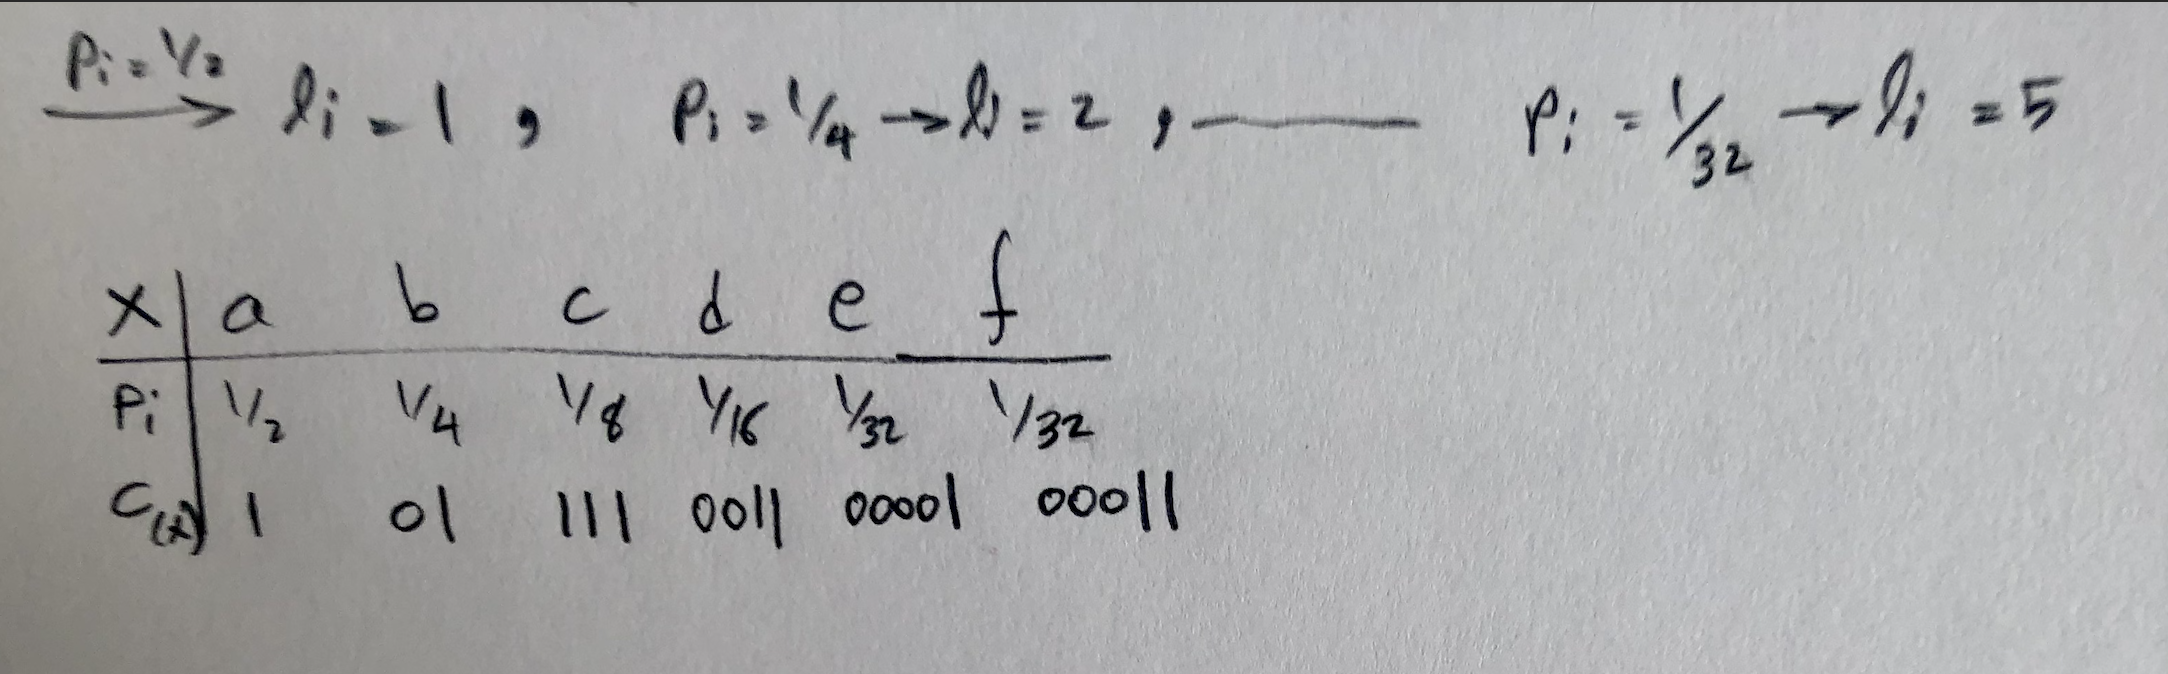 Pi = 1/2 → li = 1 , Pi = 1/4 → li = 2 , —— Pi = 1/32 → li = 5
x | a b c d e f
Pi | 1/2 1/4 1/8 1/16 1/32 1/32
C(x) | 1 01 111 0011 00001 00011